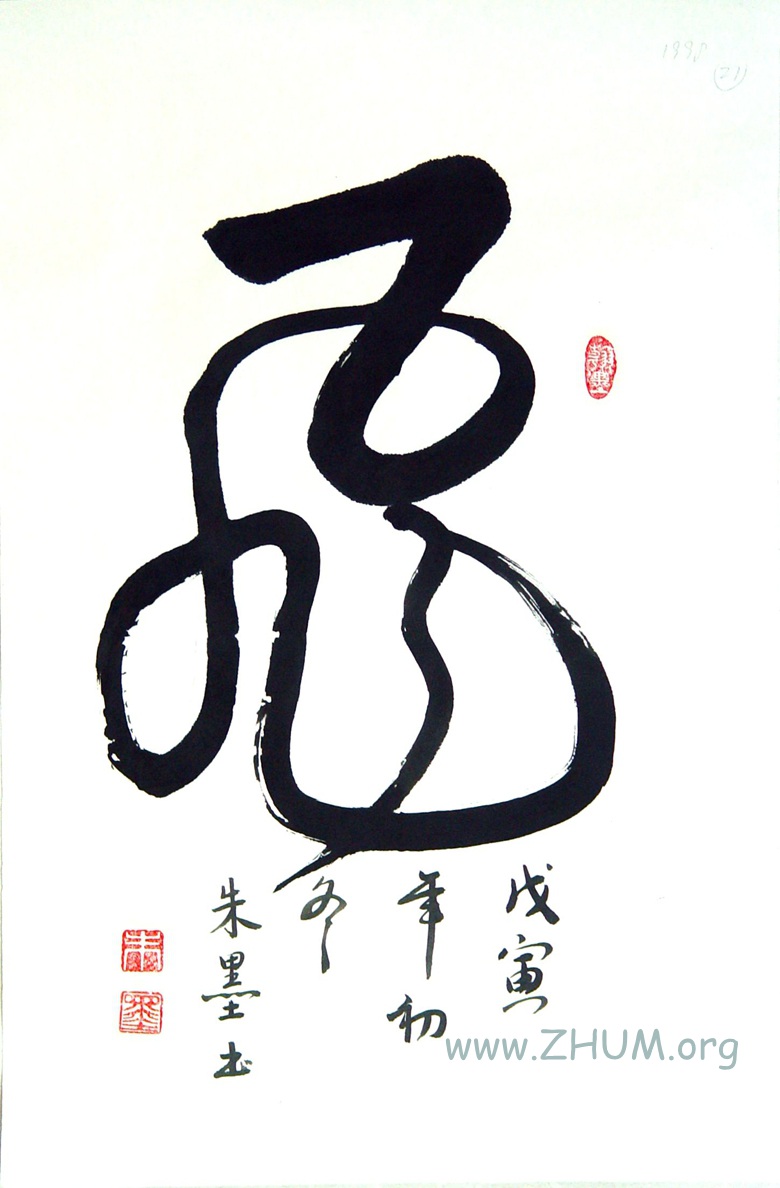 1998
21
翰墨
戊寅
年初
冬
朱墨书
朱
墨
www.ZHUM.org